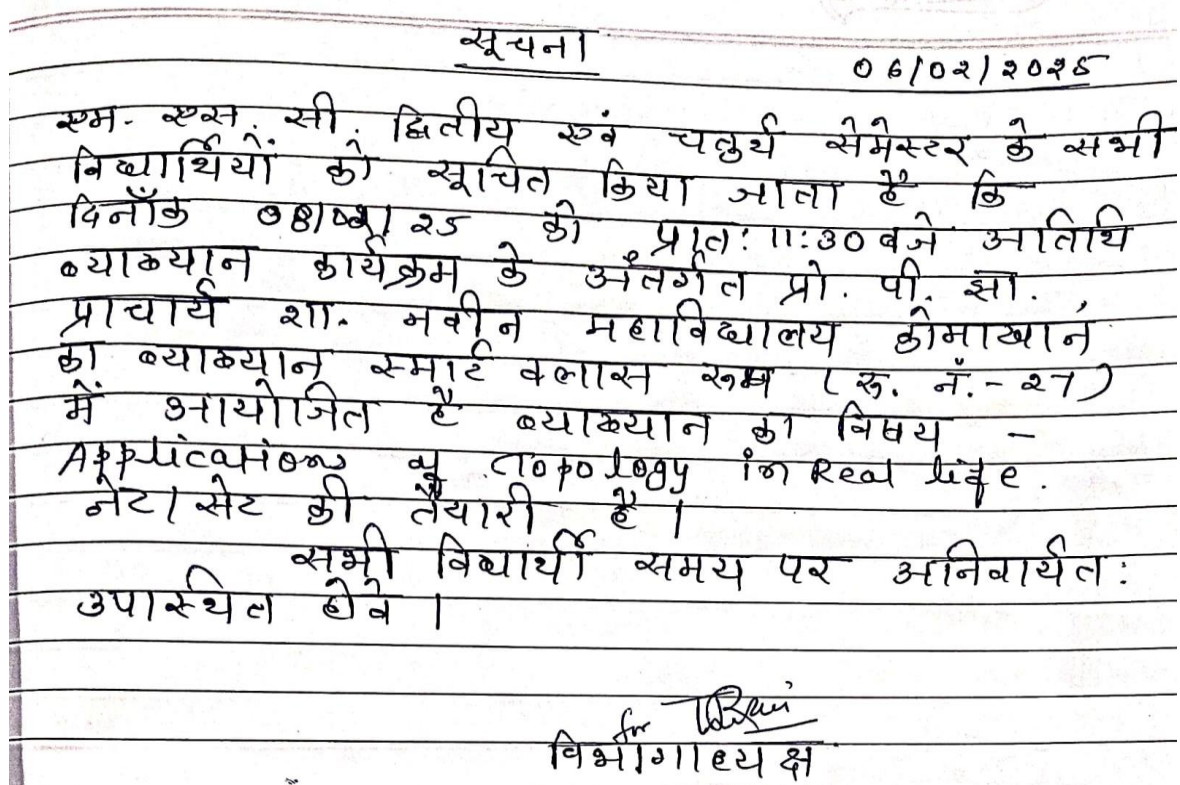 सूचना
06/02/2025
एम. एस. सी. द्वितीय एवं चतुर्थ सेमेस्टर के सभी
विद्यार्थियों को सूचित किया जाता है कि
दिनाँक 08/02/25 को प्रात: 11:30 बजे अतिथि
व्याख्यान कार्यक्रम के अंतर्गत प्रो. पी. झा.
प्राचार्य शा. नवीन महाविद्यालय कोमाखान,
का व्याख्यान स्मार्ट क्लास रूम (रू. नं. - 27)
में आयोजित है व्याख्यान का विषय -
Applications of Topology in Real life.
नेट/सेट की तैयारी है।
सभी विद्यार्थी समय पर अनिवार्यत:
उपस्थित होवे।
for
विभागाध्यक्ष